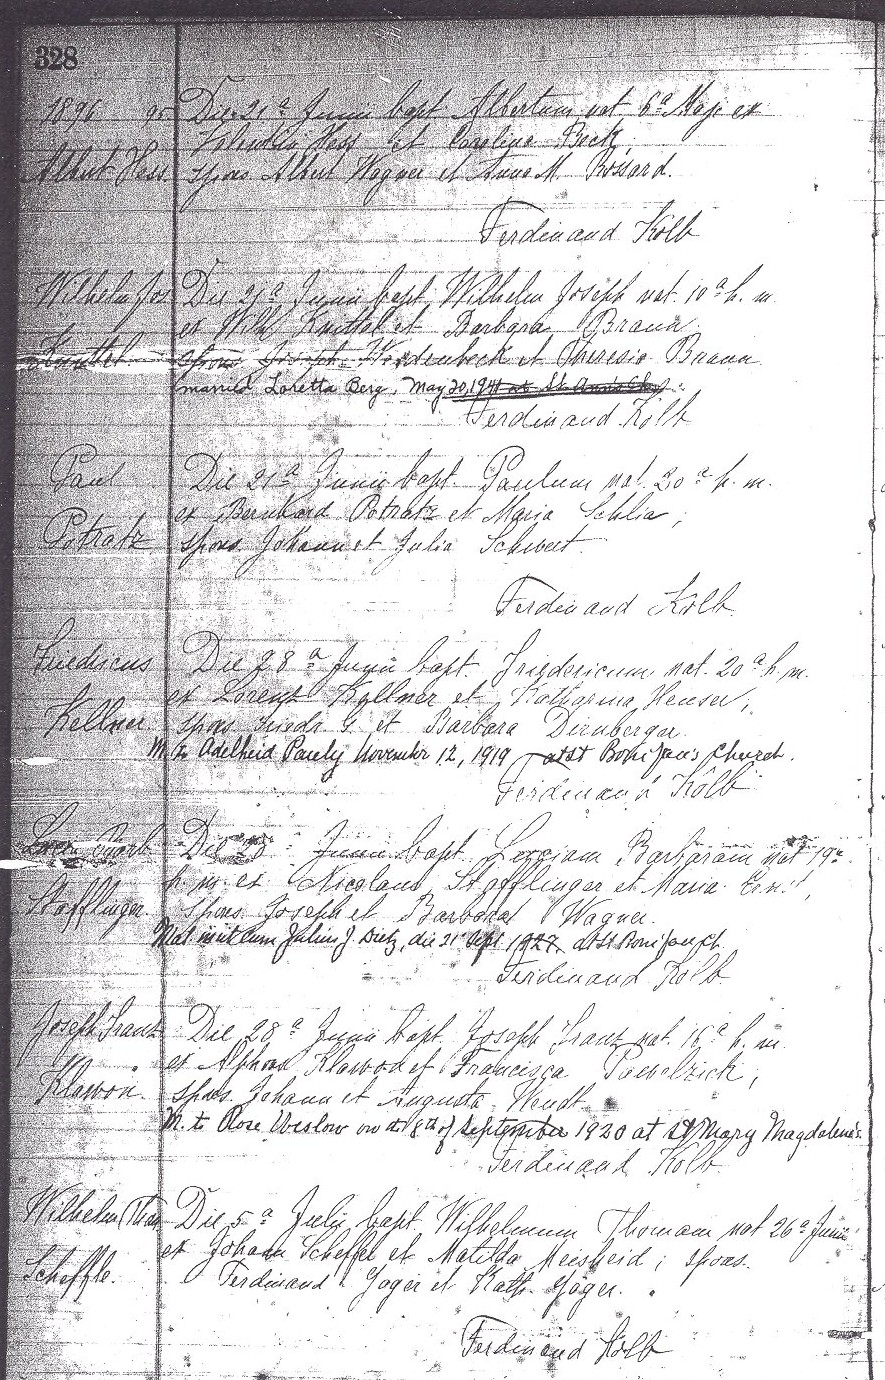 328
1896 95 Die 21a Junii bapt Albertum nat 6a Maji ex
Hess et Caroline Beck,
Albert Hess. spons Albert Wagner et Anna M. Rossard.
Ferdinand Kolb
Wilhelm Jos Die 21a Junii bapt. Wilhelm Joseph nat. 10a h. m.
ex Wilh Knittel et Barbara Braun
Knittel. spons Joseph et Theresia Braun
married Loretta Berg, May 20, 1941 at St. Ann's Ch.
Ferdinand Kolb
Paul Die 21a Junii bapt. Paulum nat. 20a h. m.
ex Bernhard Potratz et Maria Schlia,
Potratz spons Johann et Julia Schwert.
Ferdinand Kolb
Friedricus Die 28a Junii bapt. Friedericum nat. 20a h. m.
ex Lorenz Kellner et Katharina Heuser,
Kellner. spons Friedr G. et Barbara Dirnberger.
M. to Adelheid Pauly November 12, 1919 at St Bonifan's Church.
Ferdinand Kolb
Die 28 Junii bapt. Luciam Barbaram nat 19a
h. m. ex Nicolaus Stofflinger et Maria
Stofflinger. spons Joseph et Barbara Wagner.
Mat init cum Julius J. Dietz, die 21 Sept 1927 at St Bonifan ch.
Ferdinand Kolb
Joseph Franz Die 28a Junii bapt. Joseph Franz nat. 16a h. m.
ex Alphons Klawon et Francisca Pawelzick,
Klawon. spons Johann et Augusta Wendt.
M. to Rose on at 8th of September 1920 at St Mary Magdalene's.
Ferdinand Kolb
Wilhelm Thom Die 5a Julii bapt. Wilhelmum Thomam nat 26a Junii
ex Johann Scheffel et Matilda Meisheid; spons.
Scheffle. Ferdinand Jager et Kath. Jäger.
Ferdinand Kolb